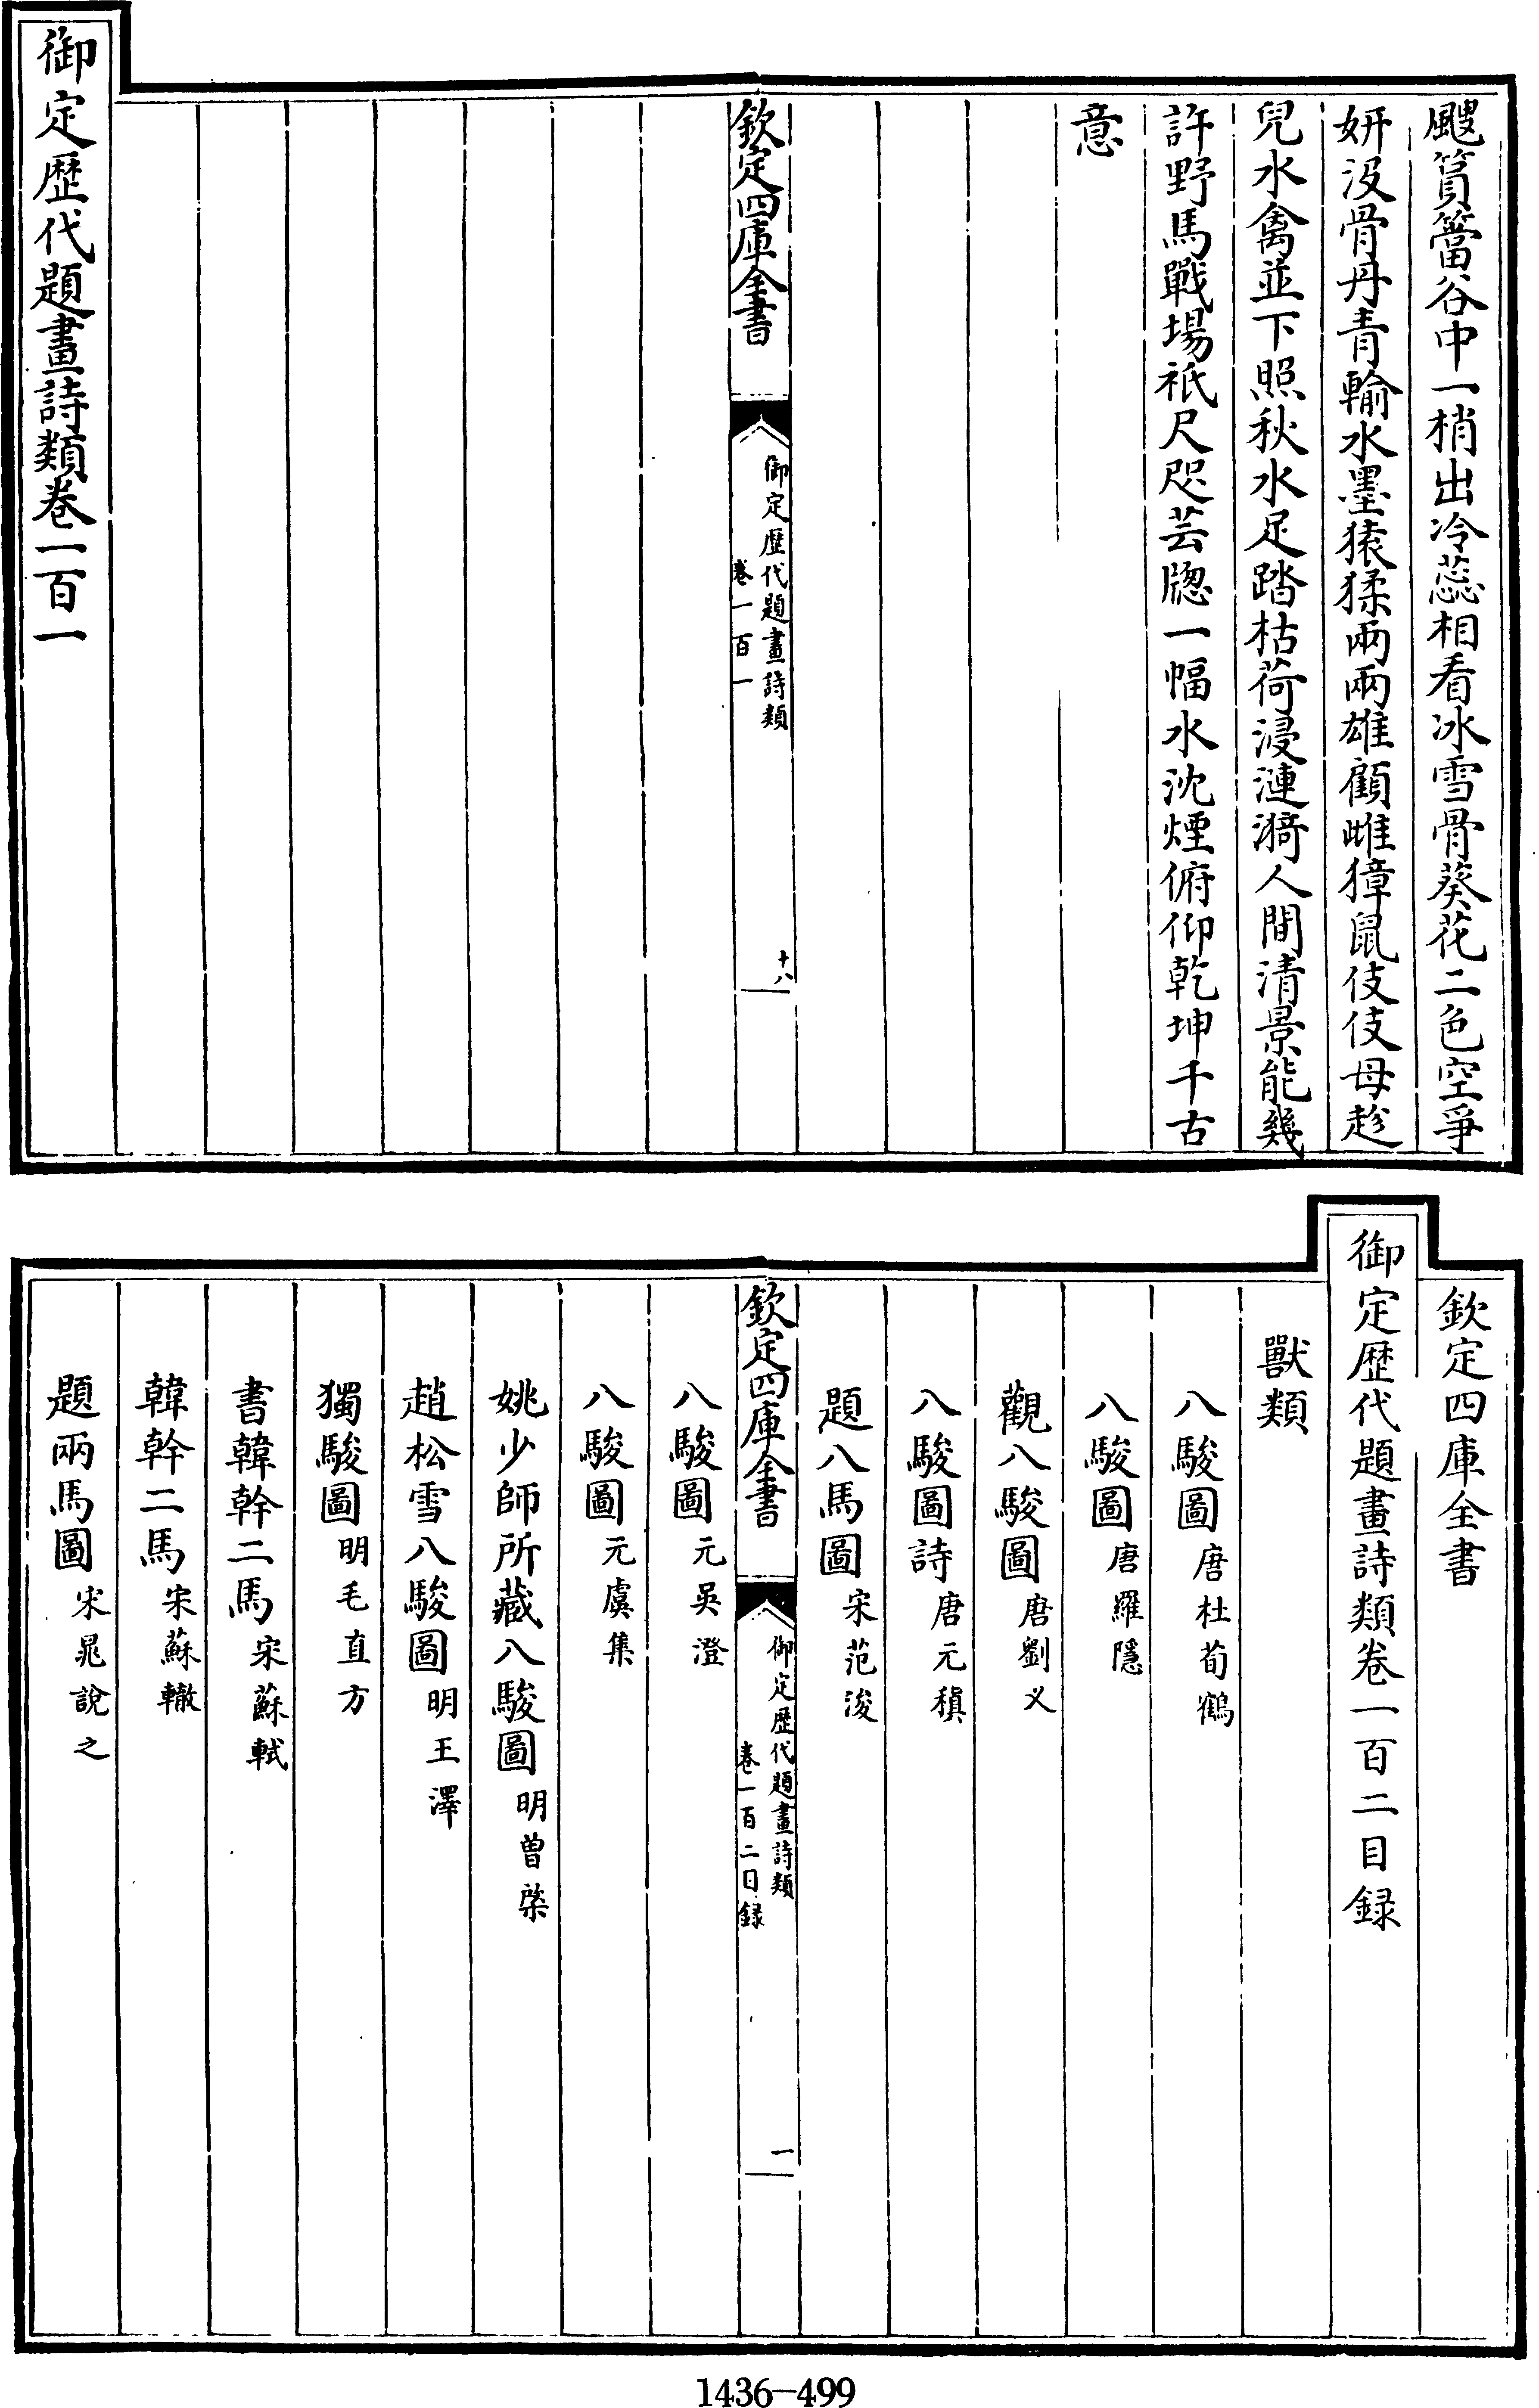 颼篔簹谷中一梢出冷蕊相看冰雪骨葵花二色空爭
妍沒骨丹青輸水墨猿猱兩兩雄顧雌獐鼠伎伎母趁
兒水禽並下照秋水足踏枯荷浸漣漪人間清景能幾
許野馬戰場祇尺咫芸牕一幅水沈煙俯仰乾坤千古
意
欽定四庫全書
御定歷代題畫詩類
卷一百一
十八
御定歷代題畫詩類卷一百一
欽定四庫全書
御定歷代題畫詩類卷一百二目録
獸類
八駿圖 唐杜荀鶴
八駿圖 唐羅隱
觀八駿圖 唐劉义
八駿圖詩 唐元稹
題八馬圖 宋范浚
欽定四庫全書
御定歷代題畫詩類
卷一百二目録
一
八駿圖 元吳澄
八駿圖 元虞集
姚少師所藏八駿圖 明曾棨
趙松雪八駿圖 明王澤
獨駿圖 明毛直方
書韓幹二馬 宋蘇軾
韓幹二馬 宋蘇轍
題兩馬圖 宋晁說之
1436-499